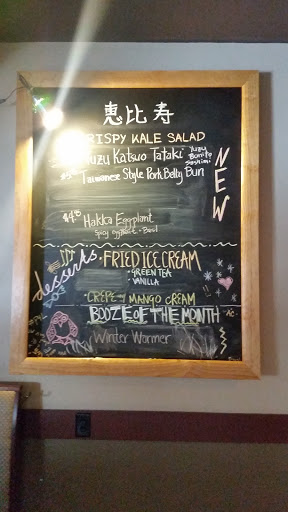 恵比寿
CRISPY KALE SALAD
Yuzu Katsuo Tataki
Yuzu Bonito Sashimi
Taiwanese Style Pork Belly Bun
NEW
Hakka Eggplant
Spicy Eggplant - Basil
desserts
FRIED ICE CREAM
GREEN TEA
VANILLA
CREPE MANGO CREAM
BOOZE OF THE MONTH
Winter Warmer